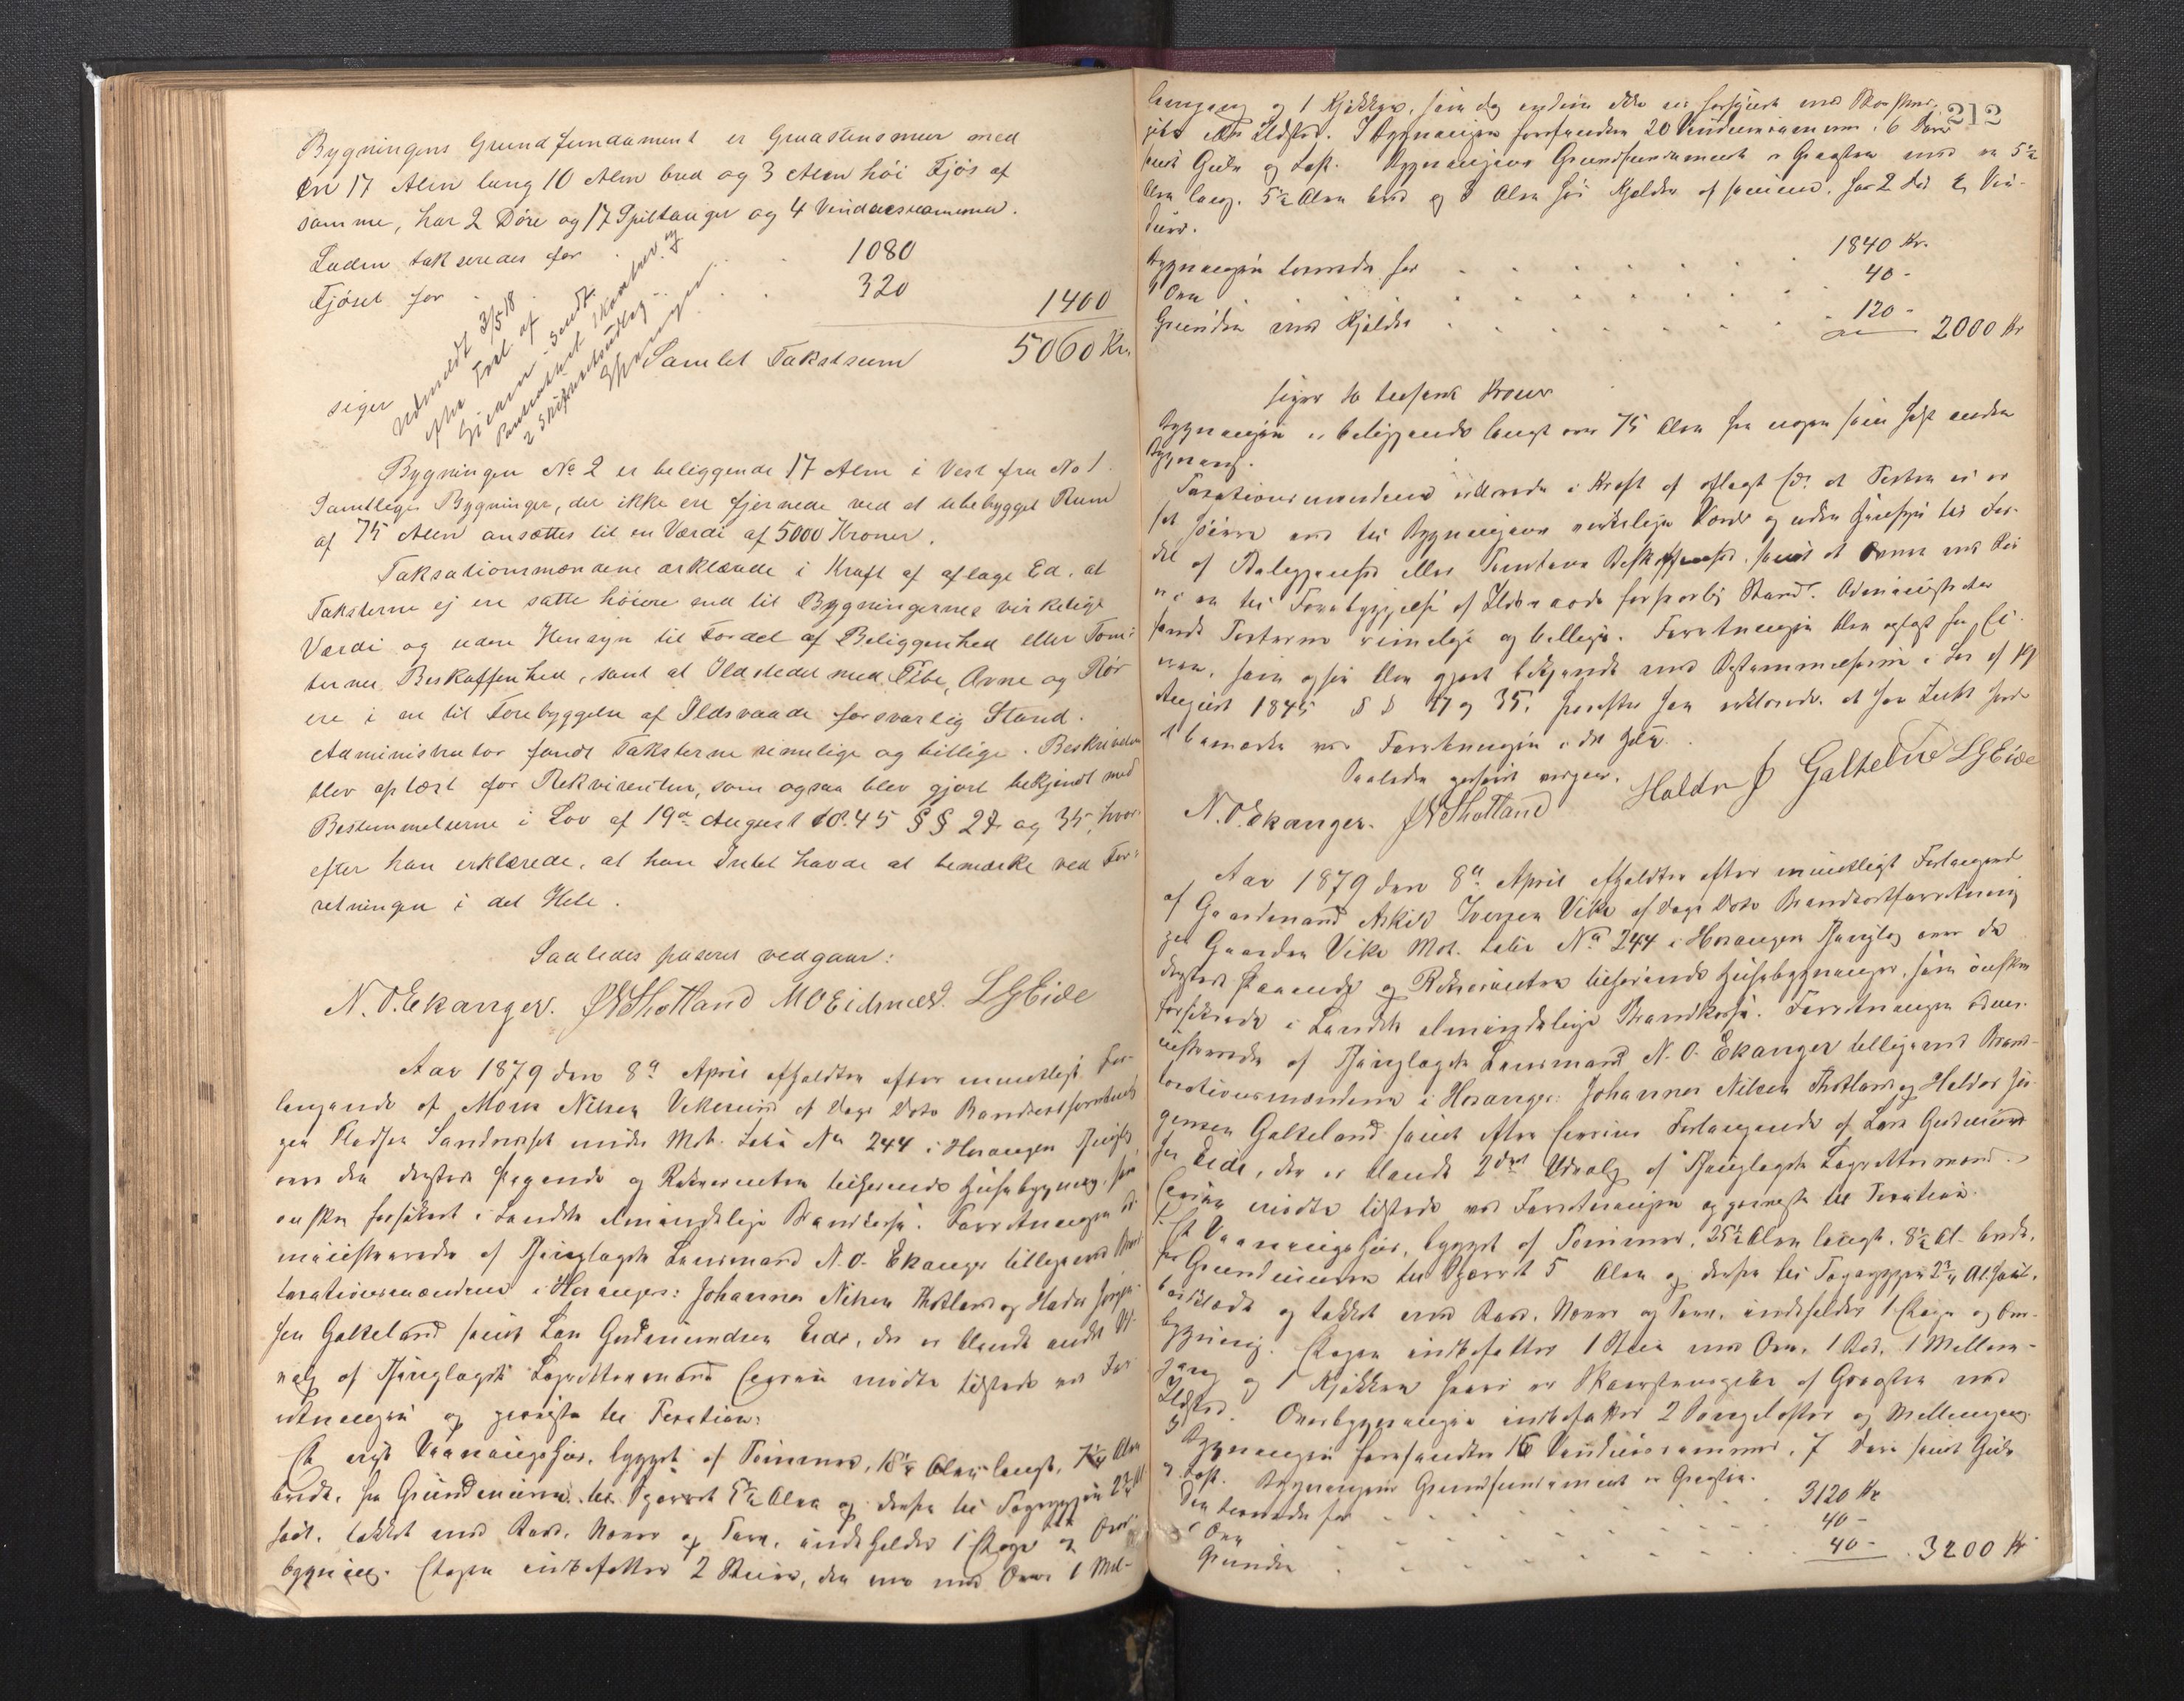 Bygningens Grundfundament er Graastensmur med
en 17 Alen lang 10 Alen bred og 3 Alen höi Fjös af
samme, har 2 Döre og 17 Spiltauger og 4 Vinduesrammer.
Laden takseredes for . . . 1080
Fjöset for . . . 320
1400
Samlet Takstsum 5060 Kr.
siger
Udmeldt 3/5 18
efter Forl. af
Bygningen No 2 er beliggende 17 Alen i Vest fra No 1.
Samtlige Bygninger, der ikke ere fjernede ved et ubebygget Rum
af 75 Alen ansættes til en Værdi af 5000 Kroner.
Taksationsmændene erklærede i Kraft af aflagte Ed, at
Taksterne ej ere satte höiere end til Bygningernes virkelige
Værdi og uden Hensyn til Fordel af Beliggenhed eller Tom-
ternes Beskaffenhed, samt at Ildstedet med Pibe, Ovne og Rör
ere i en til Forebyggelse af Ildsvaade forsvarlig Stand.
Administrator fandt Taksterne rimelige og billige. Beskrivelsen
blev oplæst for Rekvirenten, som ogsaa blev gjort bekjendt med
Bestemmelserne i Lov af 19de August 1845 §§ 27 og 35, hvor-
efter han erklærede, at han Intet havde at bemærke ved For-
retningen i det Hele.
Saaledes passeret vedgaaer:
N. O. Ekanger. JNThotland MOEidsnes. LGEide
Aar 1879 den 8de April afholdtes efter mundtligt For-
langende af Mons Nilsen Vikeneset af Dags Dato Brandtaxtforretning
paa Pladsen Sandneset under Mat. Lebe No 244 i Hosanger Thinglag
over den dersteds staaende og Rekvirenten tilhørende Huusbygning, som
ønskes forsikret i Landets almindelige Brandkasse. Forretningen ad-
ministreredes af Thinglagets Lensmand N. O. Ekanger tilligemed Brand-
taxationsmændene i Hosanger: Johannes Nilsen Thotland og Haldor Jørgen-
sen Galteland samt Lars Gudmundsen Eide, der er blandt andet Ud-
valg af Thinglagets Lagrettesmænd Censurs mødte tilstede ved For-
retningen og perviste til Taxation:
Et nyt Vaaningshus, bygget af Tømmer, 18 1/4 Alen langt, 7 3/4 Alen
bredt, fra Grundmuren til Sparret 5 1/2 Alen og derfra til Tagryggen 2 3/4 Al.
høit, tækket med Bord, Næver og Torv, indeholder 1 Etage og Over-
bygning. Etagen indbefatter 2 Stuer, den ene med Ovn, 1 Mel-
212
lemgang og 1 Kjøkken, som dog endnu ikke er forsynet med Skorstens-
pibe eller Ildsted. I Bygningen forefandtes 20 Vinduesrammer, 6 Døre
samt Gulv og Loft. Bygningens Grundfundament er Graasten med en 5 1/2
Alen lang, 5 1/2 Alen bred og 3 Alen høi Kjelder af samme, har 2 Døre 2 Vin-
duer.
Bygningen taxeredes for . . . 1840 Kr.
1 Ovn . . . 40 -
Grunden med Kjelder . . . 120 -
2000 Kr
siger to tusende Kroner
Bygningen er beliggende langt over 75 Alen fra nogen som helst anden
Bygning.
Taxationsmændene erklærede i Kraft af aflagt Ed: at Taxten ei er
sat høiere end til Bygningens virkelige Værdi og uden Hensyn til For-
del af Beliggenhed eller Tomtens Beskaffenhed, samt at Ovnen med Rør
er i en til Forebyggelse af Ildsvaade forsvarlig Stand. Administrator
fandt Taxterne rimelige og billige. Forretningen blev oplæst for Ei-
eren, som ogsaa blev gjort bekjendt med Bestemmelserne i Lov af 19
August 1845 §§ 27 og 35, hvorefter han erklærede, at han Intet havde
at bemærke ved Forretningen i det Hele.
Saaledes passeret vedgaaer.
N. O. Ekanger. JNThotland Haldor J Galteland LGEide
Aar 1879 den 8de April afholdtes efter mundtligt Forlangende
af Gaardmand Askild Iversen Vike af Dags Dato Brandtaxtforretning
paa Gaarden Vike Mat. Lebe No 244 i Hosanger Thinglag over de
dersteds staaende og Rekvirenten tilhørende Huusbygninger, som ønskes
forsikrede i Landets almindelige Brandkasse. Forretningen admi-
nistreredes af Thinglagets Lensmand N. O. Ekanger tilligemed Brand-
taxationsmændene i Hosanger: Johannes Nilsen Thotland og Haldor Jør-
gensen Galteland samt efter Censurs Forlangende af Lars Gudmund-
sen Eide, der er blandt 2det Udvalg af Thinglagets Lagrettesmænd.
Censurs mødte tilstede ved Forretningen og perviste til Taxation:
1. Et Vaaningshus, bygget af Tømmer, 25 1/2 Alen langt, 8 1/2 Al. bredt,
fra Grundmuren til Sparret 5 Alen og derfra til Tagryggen 2 3/4 Al. høit,
bordklædt og tækket med Bord, Næver og Torv, indeholder 1 Etage og Over-
bygning. Etagen indbefatter 1 Stue med Ovn, 1 Bod, 1 Mellem-
gang og 1 Kjøkken hvori er Skorstenspibe af Graasten med
Ildsted. Overbygningen indbefatter 2 Sengelofter og Mellemgang.
I Bygningen forefandtes 16 Vinduesrammer, 7 Døre samt Gulv
og Loft. Bygningens Grundfundament er Graasten.
Den taxeredes for . . . 3120 Kr
1 Ovn . . . 40 -
Grunden . . . 40 -
3200 Kr